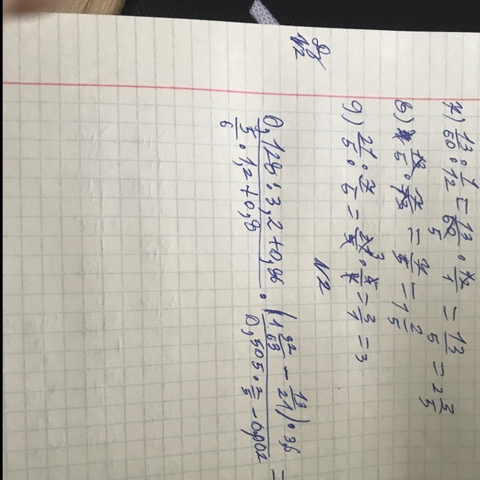 Д/З
N2
7) 13/60 : 1/12 = 13/60 · 12/1 = 13/5 = 2 3/5
8) 12/5 · 7/12 = 7/5 = 1 2/5
9) 21/5 : 7/5 = 21/5 · 5/7 = 3/1 = 3
N2
(0,128 : 3,2 + 0,86) / (5/6 · 1,2 + 0,8) · ((1 32/63 - 13/21) · 3,6) / (0,505 · 2/5 - 0,002) =